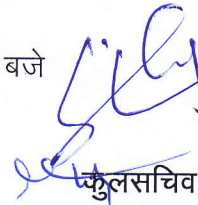 बजे
कुलसचिव